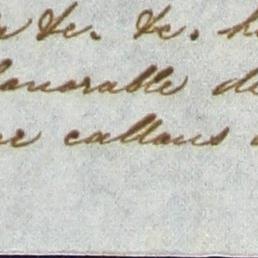 &c. &c. h
honorable de
er callous